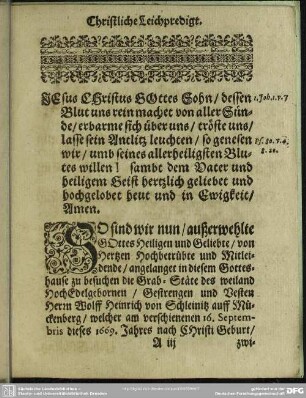 Christliche Leichpredigt.
JEsus CHristus GOttes Sohn / dessen 1. Joh. 1. v. 7
Blut uns rein machet von aller Sün-
de / erbarme sich über uns / tröste uns /
lasse sein Antlitz leuchten / so genesen Ps. 80. v. 4.
wir / umb seines allerheiligsten Blu- 8. 20.
tes willen! sambt dem Vater und
heiligem Geist hertzlich geliebet und
hochgelobet heut und in Ewigkeit /
Amen.
SO sind wir nun / außerwehlte
GOttes Heiligen und Geliebte / von
Hertzen Hochbetrübte und Mitlei-
dende / angelanget in diesem Gottes-
hause zu besuchen die Grab-Stäte des weiland
HochEdelgebornen / Gestrengen und Vesten
Herrn Wolff Heinrich von Schleinitz auff
ckenberg / welcher am verschienenen 16. Septem-
bris dieses 1669. Jahres nach CHristi Geburt /
A iij zwi-